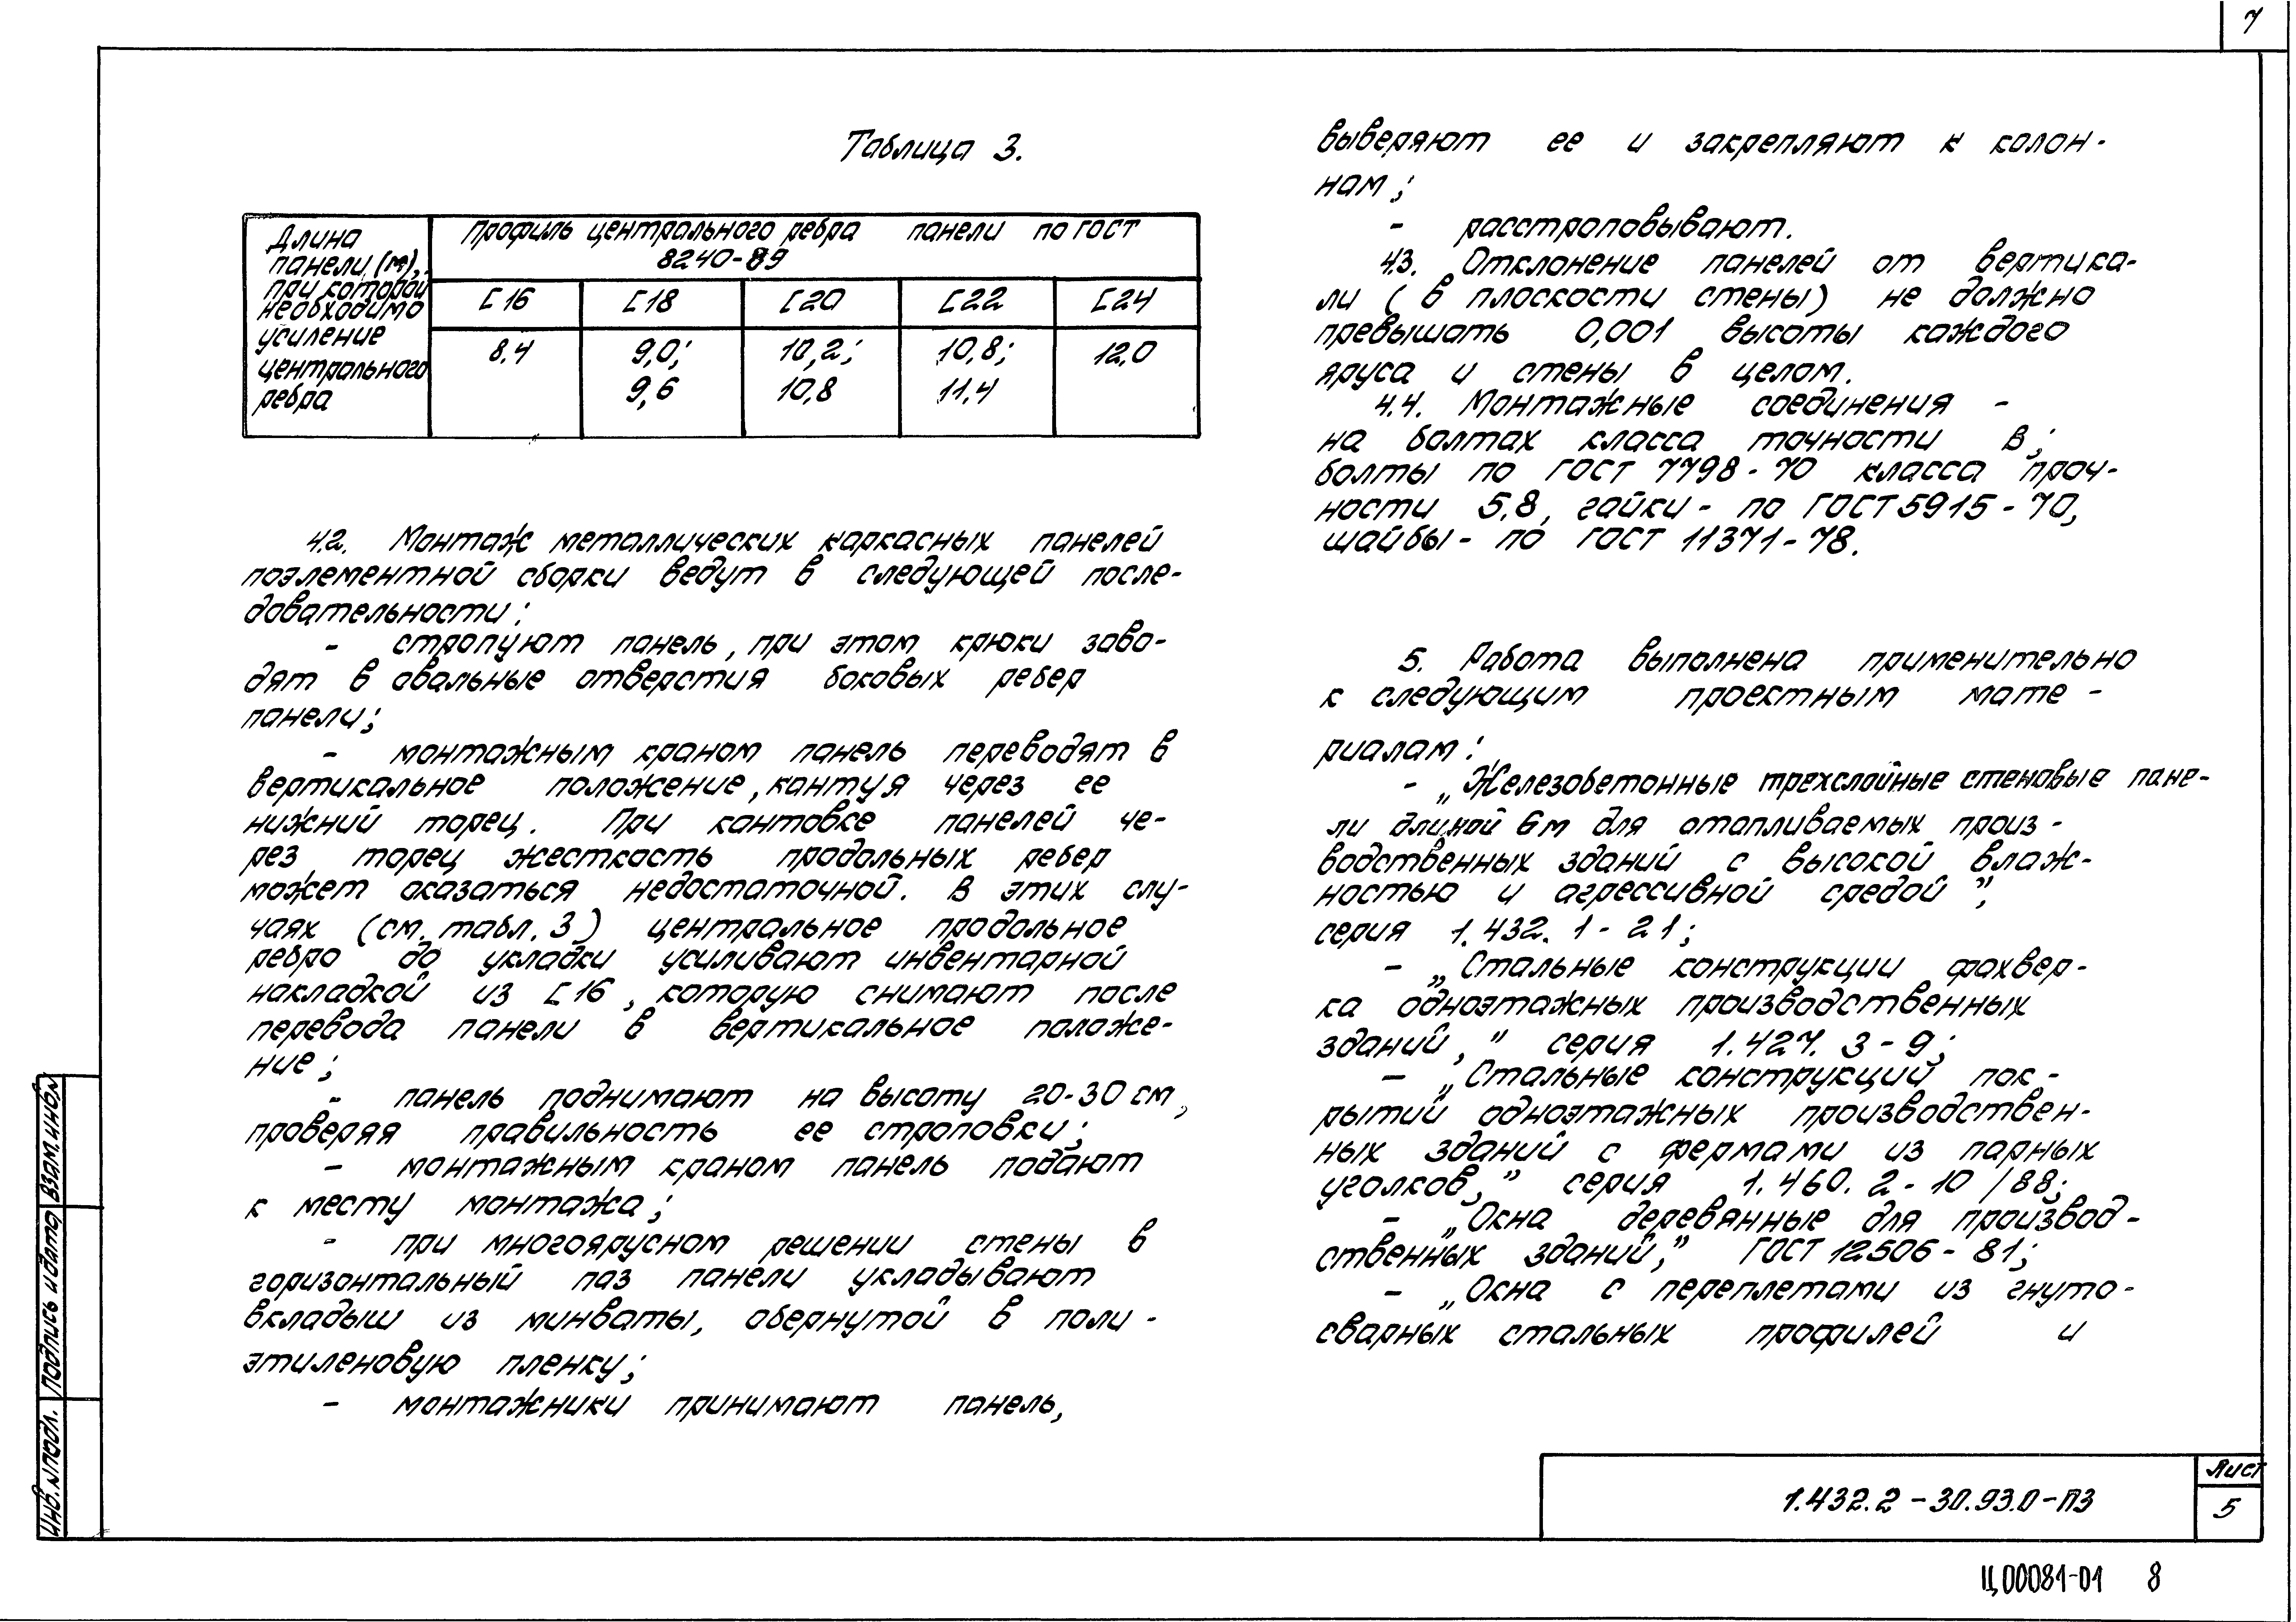 7
Таблица 3.
Длина
панели (м),
при которой
необходимо
усиление
центрального
ребра
Профиль центрального ребра панели по ГОСТ
8240-89
[16 [18 [20 [22 [24
8,4 9,0; 10,2; 10,8; 12,0
9,6 10,8 11,4
4.2. Монтаж металлических каркасных панелей
поэлементной сборки ведут в следующей после-
довательности:
- стропуют панель, при этом крюки заво-
дят в овальные отверстия боковых ребер
панели;
- монтажным краном панель переводят в
вертикальное положение, кантуя через ее
нижний торец. При кантовке панелей че-
рез торец жесткость продольных ребер
может оказаться недостаточной. В этих слу-
чаях (см. табл. 3) центральное продольное
ребро до укладки усиливают инвентарной
накладкой из [16, которую снимают после
перевода панели в вертикальное положе-
ние;
- панель поднимают на высоту 20-30 см,
проверяя правильность ее строповки;
- монтажным краном панель подают
к месту монтажа;
- при многоярусном решении стены в
горизонтальный паз панели укладывают
вкладыш из минваты, обернутой в поли-
этиленовую пленку;
- монтажники принимают панель,
выверяют ее и закрепляют к колон-
нам;
- расстроповывают.
4.3. Отклонение панелей от вертика-
ли (в плоскости стены) не должно
превышать 0,001 высоты каждого
яруса и стены в целом.
4.4. Монтажные соединения -
на болтах класса точности В;
болты по ГОСТ 7798-70 класса проч-
ности 5.8, гайки - по ГОСТ 5915-70,
шайбы - по ГОСТ 11371-78.
5. Работа выполнена применительно
к следующим проектным мате-
риалам:
- „Железобетонные трехслойные стеновые пане-
ли длиной 6м для отапливаемых произ-
водственных зданий с высокой влаж-
ностью и агрессивной средой”,
серия 1.432.1-21;
- „Стальные конструкции фахвер-
ка одноэтажных производственных
зданий,” серия 1.427.3-9;
- „Стальные конструкций пок-
рытий одноэтажных производствен-
ных зданий с фермами из парных
уголков,” серия 1.460.2-10/88;
- „Окна деревянные для производ-
ственных зданий,” ГОСТ 12506-81;
- „Окна с переплетами из гнуто-
сварных стальных профилей и
Инв.№подл. Подпись и дата Взам.инв.№
1.432.2-30.93.0-ПЗ
Лист
5
Ц00081-01 8